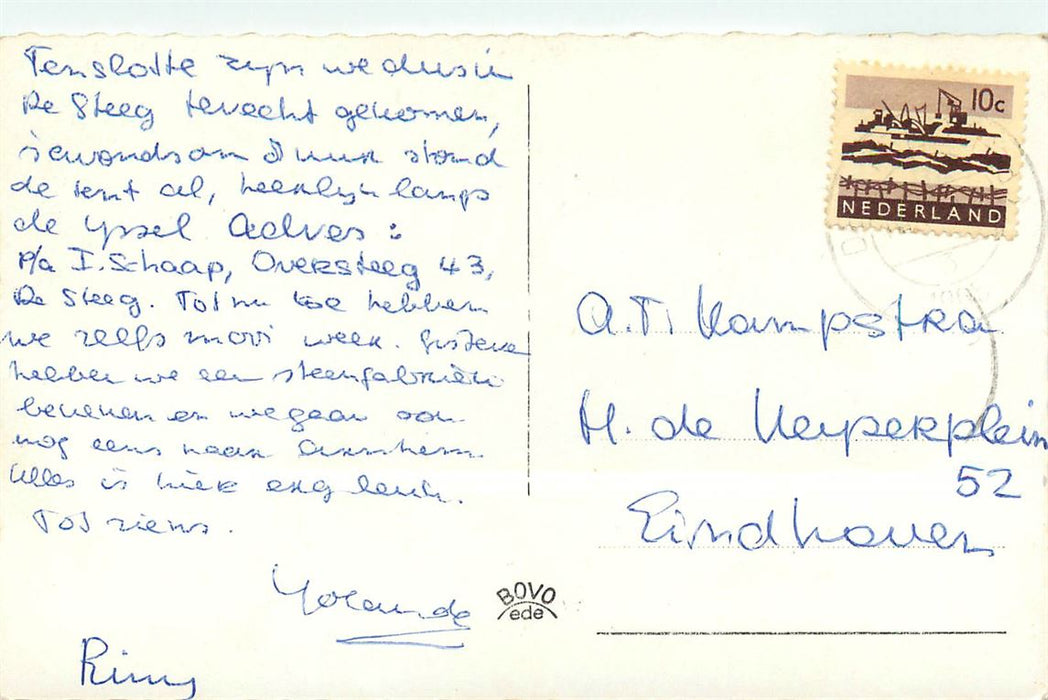 Tenslotte zijn we dus in
De Steeg terecht gekomen,
's avonds om 8 uur stond
de tent al, heerlijk langs
de Yssel Adres :
p/a I. Schaap, Oversteeg 43,
De Steeg. Tot nu toe hebben
we zelfs mooi weer. Gisteren
hebben we een steenfabriek
bekeken en we gaan ook
nog eens naar Arnhem.
Alles is hier erg leuk.
Tot ziens.
Yolande
10c
NEDERLAND
A.T. Kampstra
H. de Keyserplein
52
Eindhoven
BOVO
ede